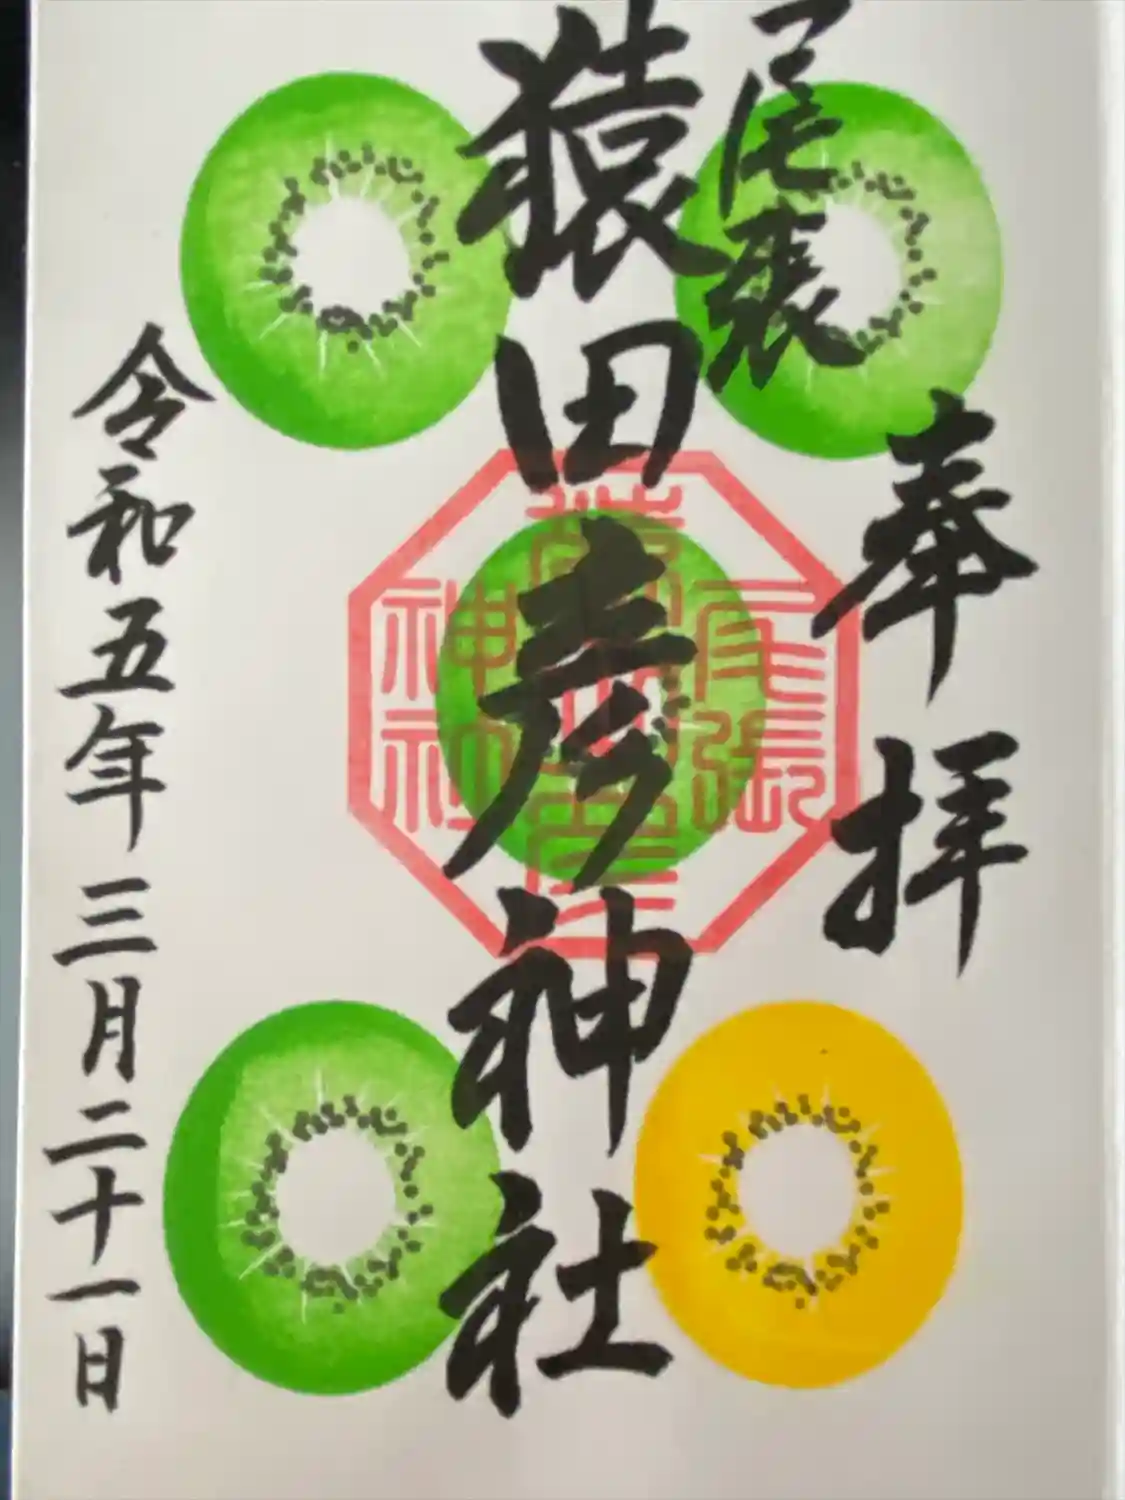 奉拝
尾張
猿田彦神社
尾張
猿田彦
神社
令和五年三月二十一日